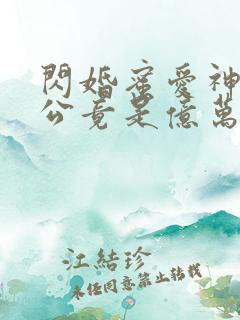 閃婚蜜愛神
公竟是億萬
江結珍
未任同意禁止轉載